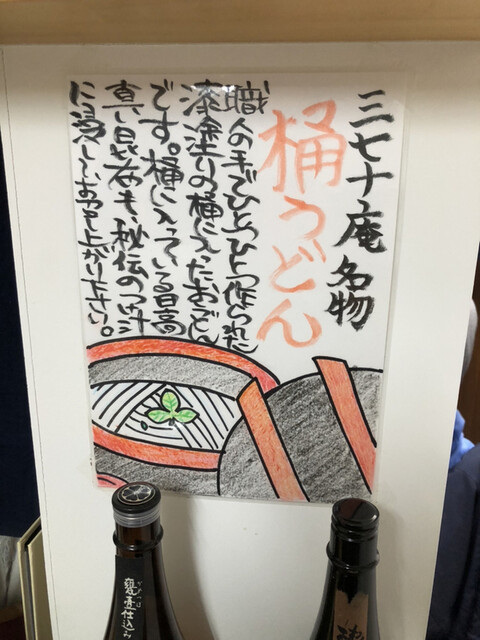 三七十庵名物
桶うどん
職人の手でひとつひとつ作られた
漆塗りの桶に入ったおうどん
です。桶に入っている日高の
真い昆布も、秘伝のつけ汁
に浸しお召し上がり下さい。
甕壺仕込み